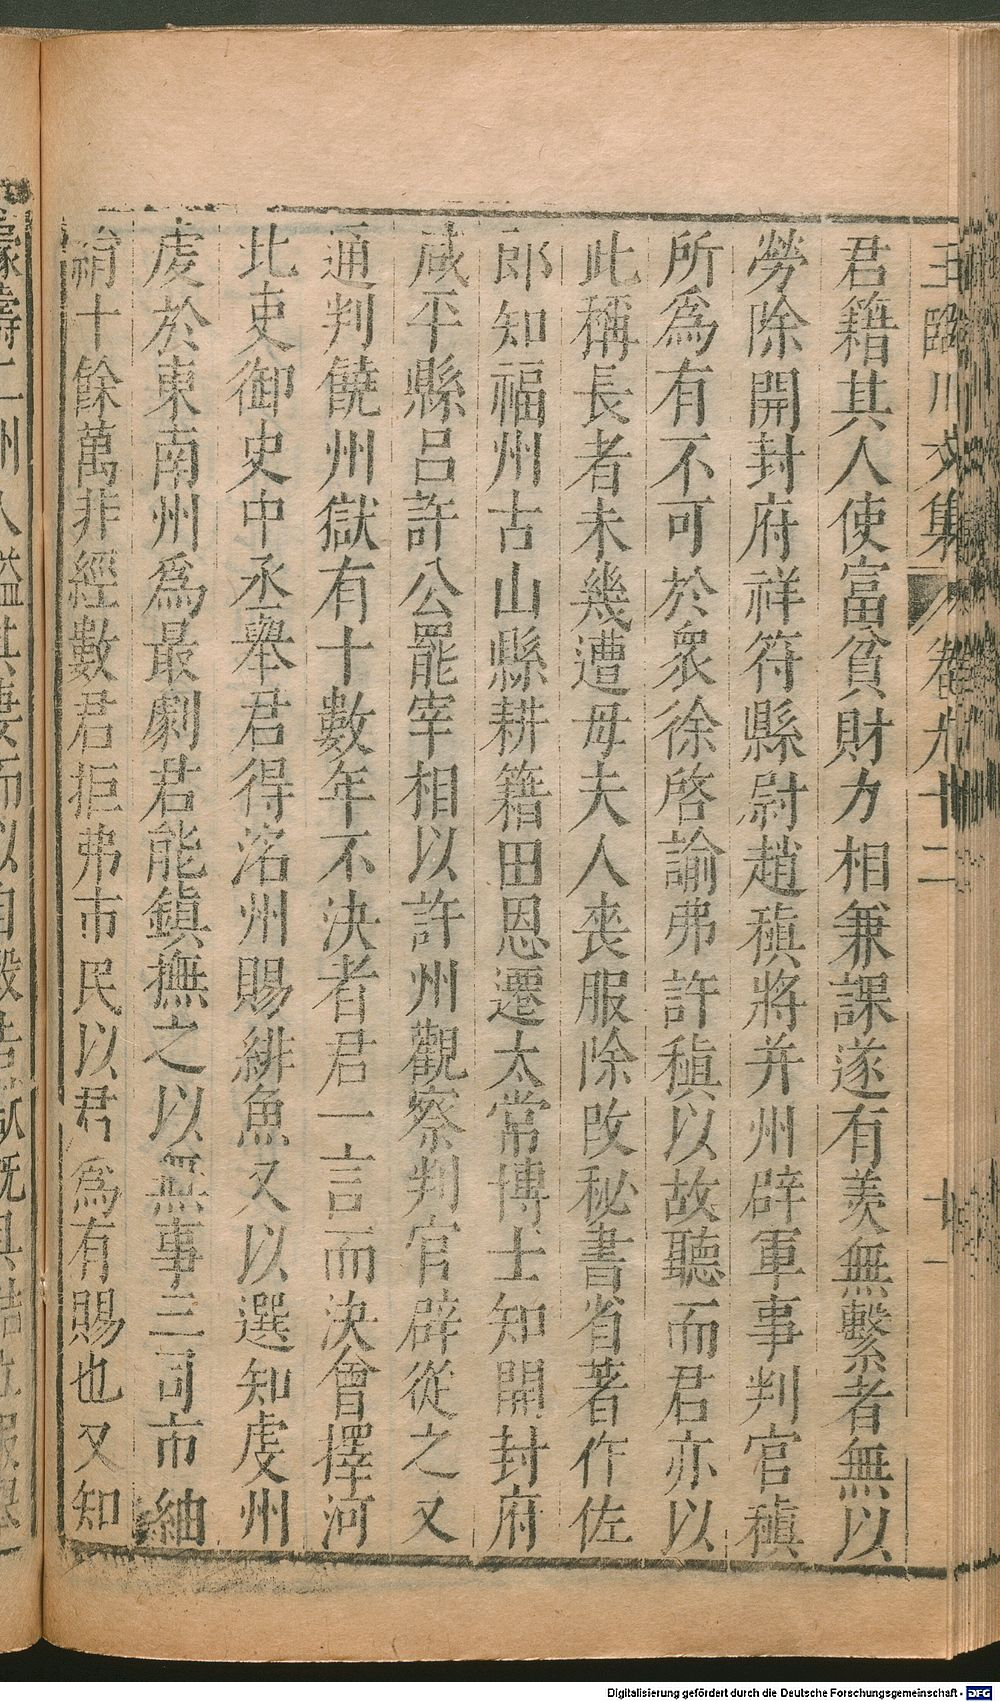 王臨川文集 卷九十二 十一
君籍其人使富貧財力相兼課遂有羨無繫者無以
勞除開封府祥符縣尉趙稹將并州辟軍事判官稹
所爲有不可於衆徐啓諭弗許稹以故聽而君亦以
此稱長者未幾遭母夫人丧服除改秘書省著作佐
郎知福州古山縣耕籍田恩遷太常博士知開封府
咸平縣呂許公罷宰相以許州觀察判官辟從之又
通判饒州獄有十數年不決者君一言而決會擇河
北吏御史中丞舉君得洺州賜緋魚又以選知虔州
虔於東南州爲最劇君能鎮撫之以無事三司市紬
絹十餘萬非經數君拒弗市民以君爲有賜也又知
Digitalisierung gefördert durch die Deutsche Forschungsgemeinschaft - DFG